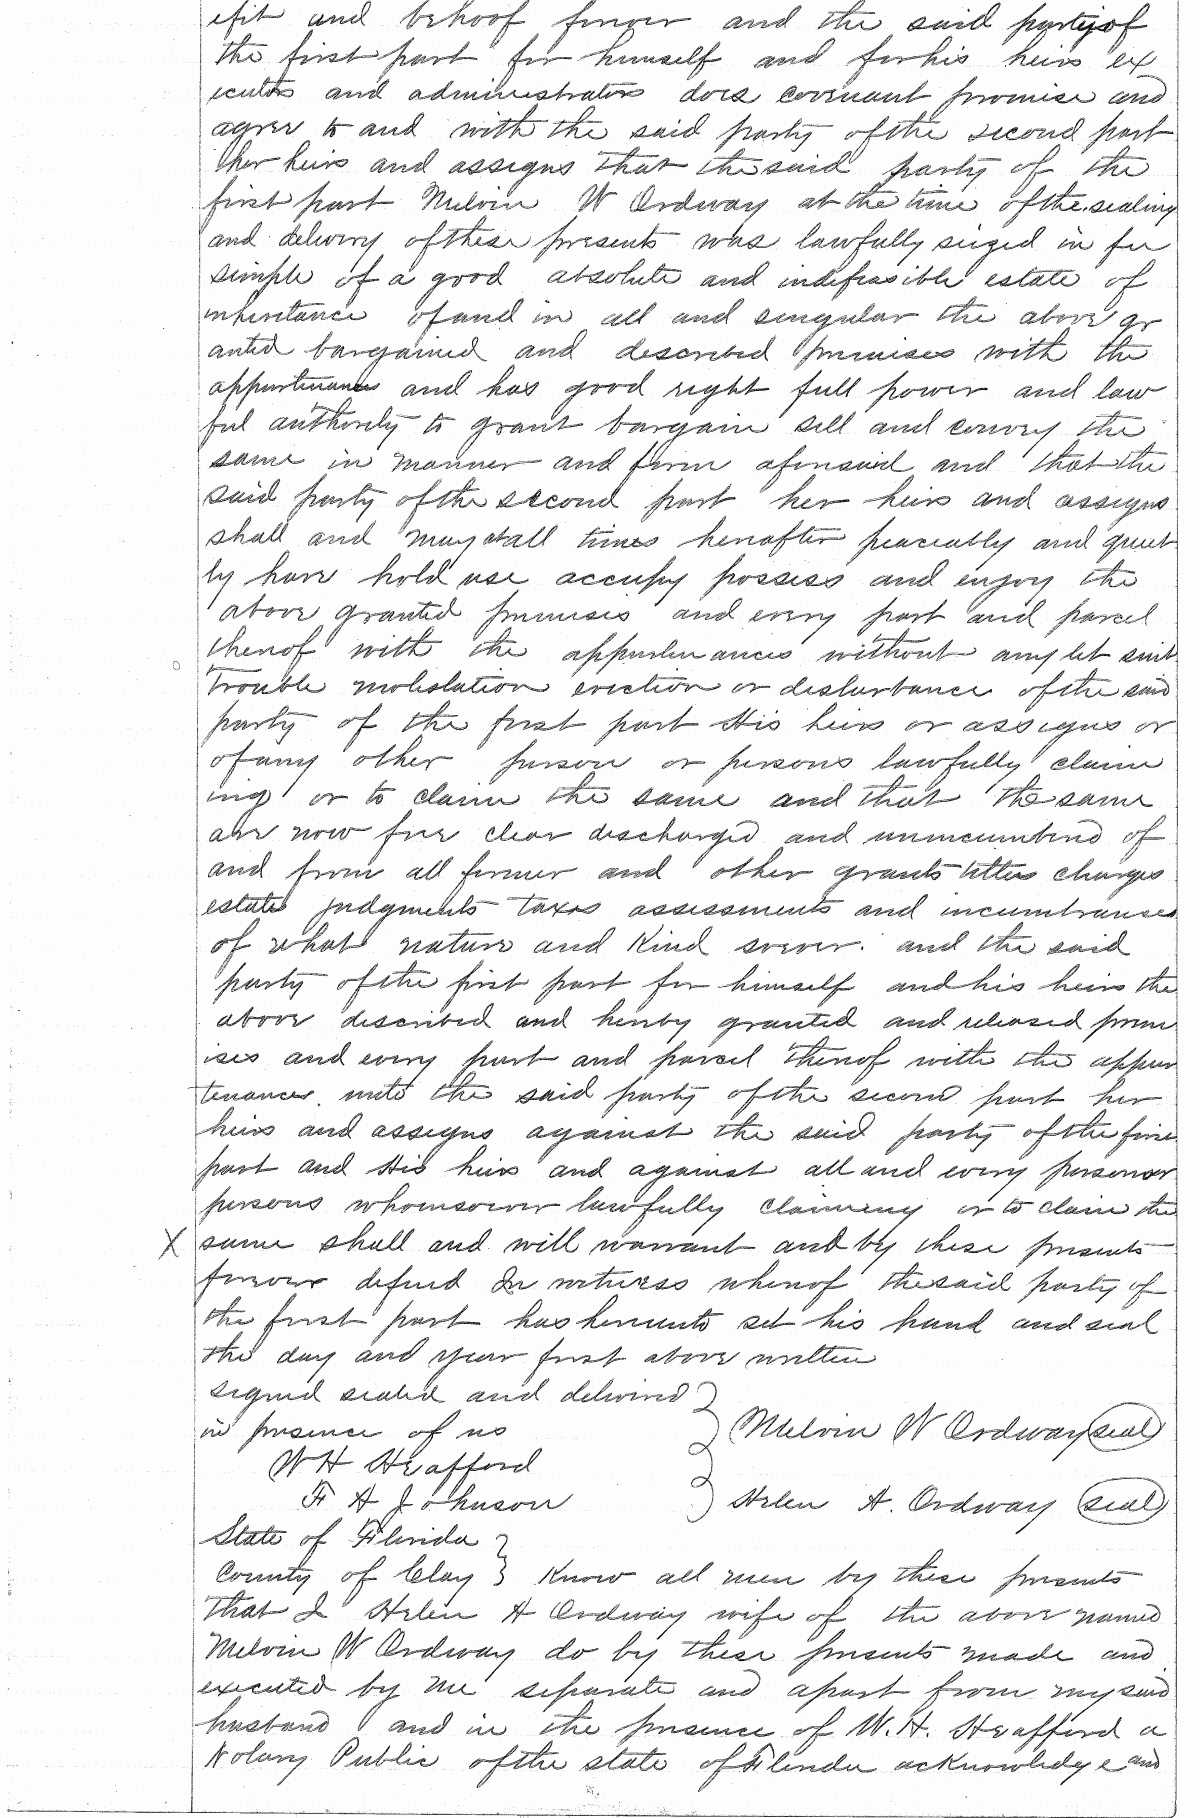 efit and behoof forever and the said party of
the first part for himself and for his heirs ex
ecutors and administrators does covenant promise and
agree to and with the said party of the second part
her heirs and assigns that the said party of the
first part Melvin W Ordway at the time of the sealing
and delivery of these presents was lawfully seized in fee
simple of a good absolute and indefeasible estate of
inheritance of and in all and singular the above gr
anted bargained and described premises with the
appurtenances and has good right full power and law
ful authority to grant bargain sell and convey the
same in manner and form aforesaid and that the
said party of the second part her heirs and assigns
shall and may at all times hereafter peaceably and quiet
ly have hold use occupy possess and enjoy the
above granted premises and every part and parcel
thereof with the appurtenances without any let suit
trouble molistation eviction or disturbance of the said
party of the first part His heirs or assigns or
of any other person or persons lawfully claim
ing or to claim the same and that the same
are now free clear discharged and unincumbered of
and from all former and other grants titles charges
estates judgments taxes assessments and incumbrances
of what nature and Kind soever. and the said
party of the first part for himself and his heirs the
above described and hereby granted and released prem
ises and every part and parcel thereof with the appur
tenances. unto the said party of the second part her
heirs and assigns against the said party of the first
part and His heirs and against all and every person or
persons whomsoever lawfully claiming or to claim the
X same shall and will warrant and by these presents
forever defend In witness whereof the said party of
the first part has hereunto set his hand and seal
the day and year first above written
signed sealed and delivered
in presence of us Melvin W Ordway seal
W H Heafford
F A Johnson Helen A. Ordway seal
State of Florida
County of Clay Know all men by these presents
That I Helen A Ordway wife of the above named
Melvin W Ordway do by these presents made and
executed by me separate and apart from my said
husband and in the presence of W. H. Heafford a
Notary Public of the state of Florida acknowledge and